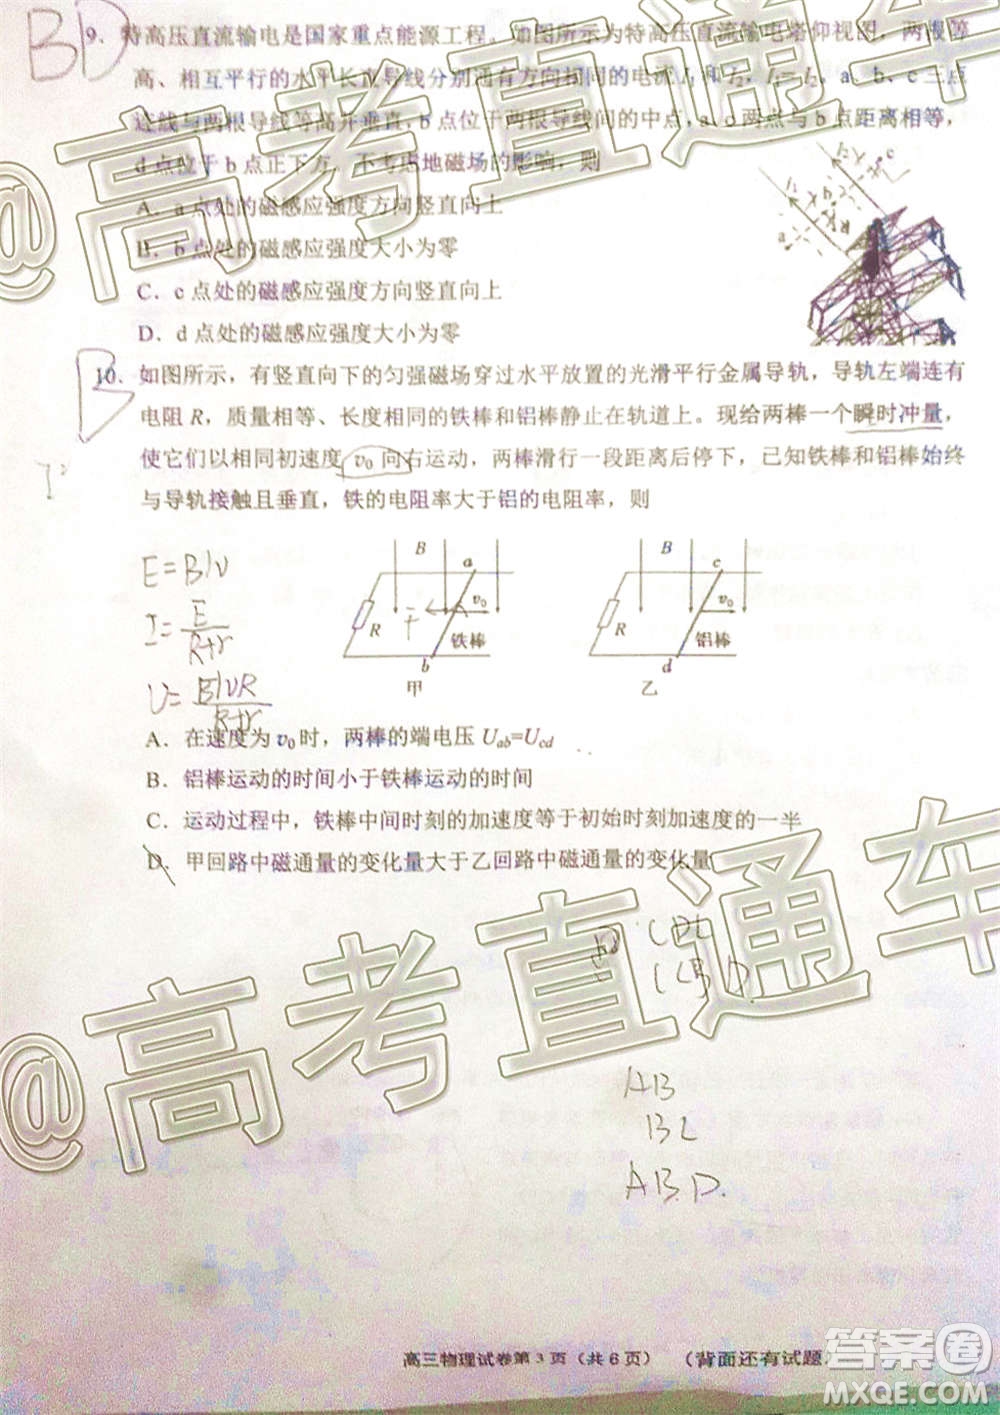 BD
9．特高压直流输电是国家重点能源工程。如图所示为特高压直流输电塔仰视图，两根等
高、相互平行的水平长直导线分别通有方向相同的电流I₁和I₂，I₁=I₂，a、b、c三点
连线与两根导线等高并垂直，b点位于两根导线间的中点，a、c两点与b点距离相等，
d点位于b点正下方。不考虑地磁场的影响，则
A．a点处的磁感应强度方向竖直向上
B．b点处的磁感应强度大小为零
C．c点处的磁感应强度方向竖直向上
D．d点处的磁感应强度大小为零
I₂ c
I₁ b
a
B
10．如图所示，有竖直向下的匀强磁场穿过水平放置的光滑平行金属导轨，导轨左端连有
电阻R，质量相等、长度相同的铁棒和铝棒静止在轨道上。现给两棒一个瞬时冲量，
使它们以相同初速度v₀向右运动，两棒滑行一段距离后停下，已知铁棒和铝棒始终
与导轨接触且垂直，铁的电阻率大于铝的电阻率，则
E=Blv
I=E/(R+r)
U=BlvR/(R+r)
B a
R v₀
铁棒
b
甲
B c
R v₀
铝棒
d
乙
A．在速度为v₀时，两棒的端电压Uab=Ucd
B．铝棒运动的时间小于铁棒运动的时间
C．运动过程中，铁棒中间时刻的加速度等于初始时刻加速度的一半
D．甲回路中磁通量的变化量大于乙回路中磁通量的变化量
AB
BC
ABD.
高三物理试卷第3页（共6页）（背面还有试题
@高考直通车
@高考直通车
答案圈
MXQE.COM